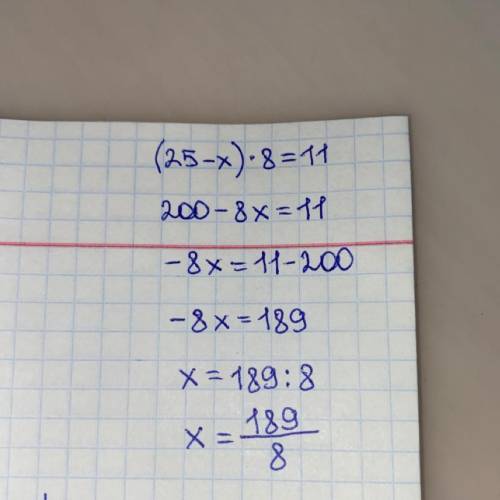 (25-x)·8=11
200-8x=11
-8x=11-200
-8x=189
x=189:8
x=189/8